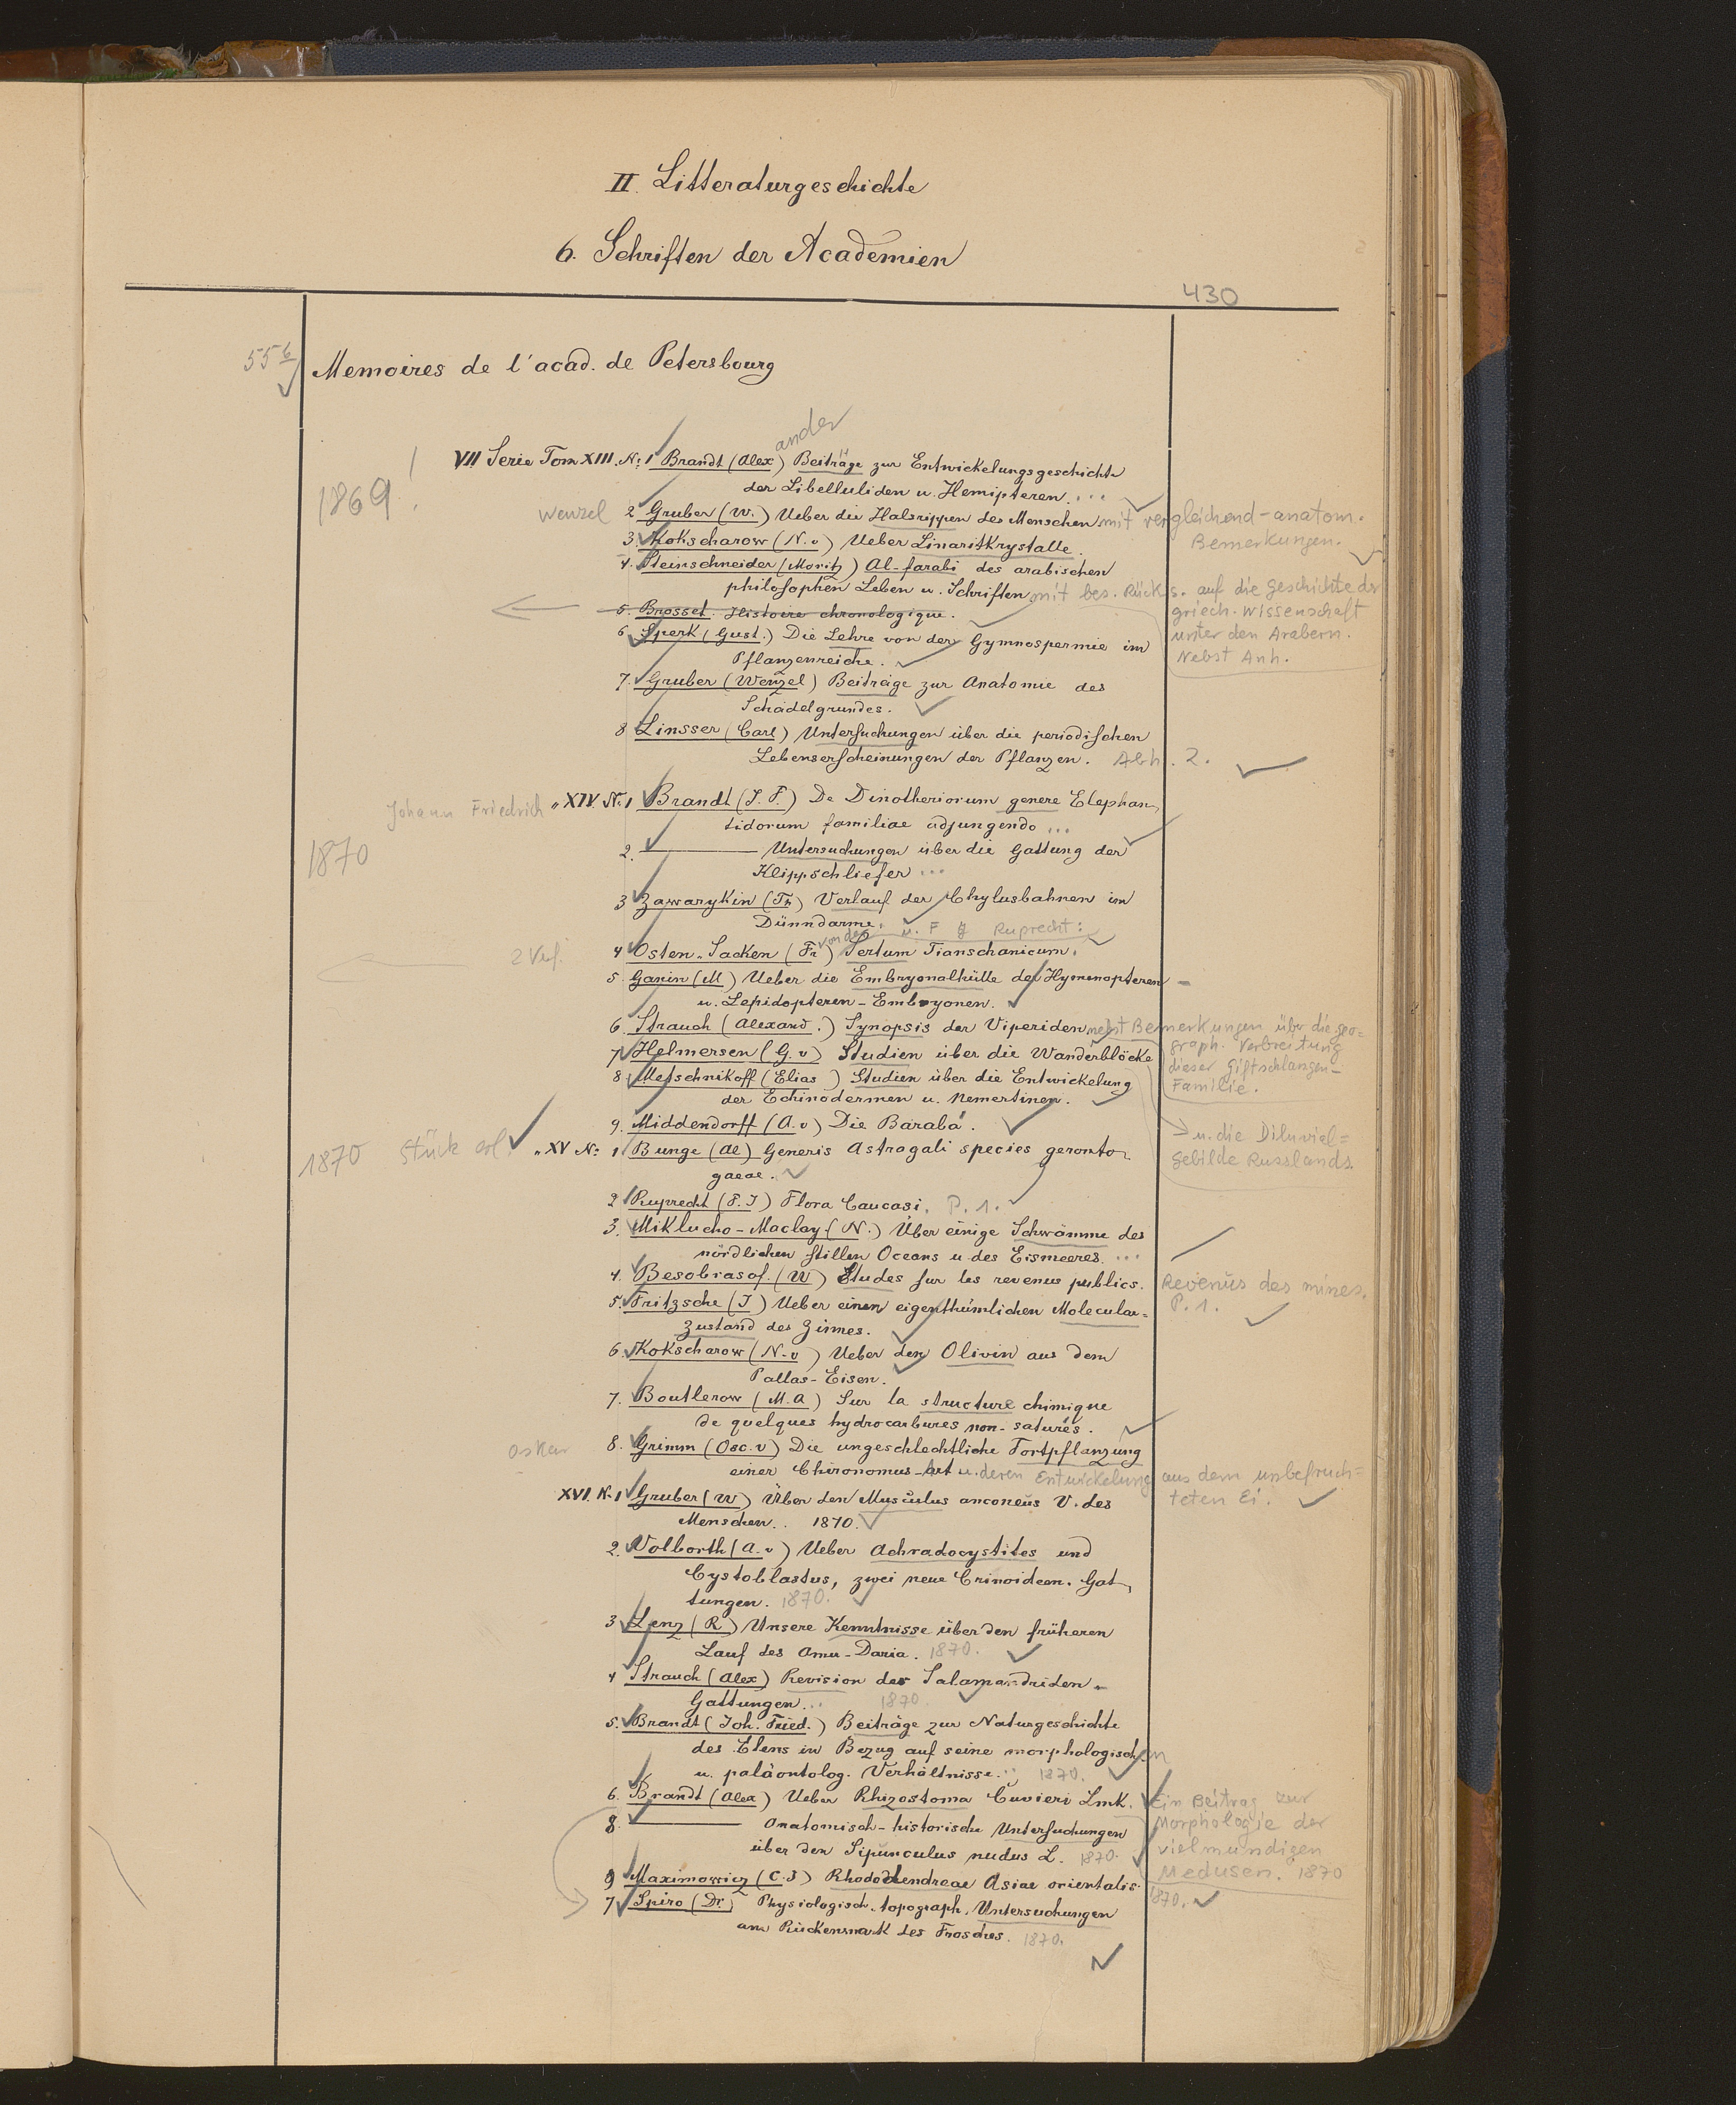 II. Litteraturgeschichte
6. Schriften der Academien
430
55 b Memoires de l'acad. de Petersbourg
ander
VII Serie Tom XIII. N: 1 Brandt (Alex) Beiträge zur Entwickelungsgeschichte
1869! der Libelluliden u. Hemipteren...
Wenzel 2 Gruber (W.) Ueber die Halsrippen des Menschen mit vergleichend-anatom.
Bemerkungen.
3. Kokscharow (N. v) Ueber Linaritkrystalle.
4. Steinschneider (Moritz) Al-farabi des arabischen
philosophen Leben u. Schriften mit bes. Rücks. auf die Geschichte der
griech. Wissenschaft
unter den Arabern.
Nebst Anh.
5. Brosset. Histoire chronologique.
6 Sperk (Gust.) Die Lehre von der Gymnospermie im
Pflanzenreiche.
7. Gruber (Wenzel) Beiträge zur Anatomie des
Schädelgrundes.
8 Linsser (Carl) Untersuchungen über die periodischen
Lebenserscheinungen der Pflanzen. Abh. 2.
Johann Friedrich " XIV. N: 1 Brandt (J. F.) De Dinotheriorum genere Elephan-
tidorum familiae adjungendo...
1870 2. — Untersuchungen über die Gattung der
Klippschliefer...
3 Zawarykin (Th) Verlauf der Chylusbahnen im
Dünndarme.
von der u. F J Ruprecht:
2 Verf. 4 Osten-Sacken (Fr) Sertum Tianschanicum.
5. Ganin (M) Ueber die Embryonalhülle der Hymenopteren-
u. Lepidopteren-Embryonen.
6. Strauch (Alexand.) Synopsis der Viperiden nebst Bemerkungen über die geo-
graph. Verbreitung
dieser Giftschlangen-
Familie.
7 Helmersen (G. v) Studien über die Wanderblöcke
→ u. die Diluvial=
gebilde Russlands
8. Metschnikoff (Elias) Studien über die Entwickelung
der Echinodermen u. Nemertinen.
9. Middendorff (A. v) Die Barabá.
1870 Stück " XV N: 1 Bunge (Al) Generis Astragali species geronto-
gaeae.
2 Ruprecht (F. J) Flora Caucasi. P. 1.
3. Miklucho-Maclay (N.) Über einige Schwämme des
nördlichen stillen Oceans u. des Eismeeres...
4. Besobrasof. (W) Études sur les revenus publics. Revenus des mines.
P. 1.
5. Fritzsche (J) Ueber einen eigenthümlichen Molecular-
zustand des Zinnes.
6. Kokscharow (N. v) Ueber den Olivin aus dem
Pallas-Eisen.
7. Boutlerow (M. A) Sur la structure chimique
de quelques hydrocarbures non-saturés.
Oskar 8. Grimm (Osc. v) Die ungeschlechtliche Fortpflanzung
einer Chironomus-Art u. deren Entwickelung aus dem unbefruch=
teten Ei.
XVI. N. 1 Gruber (W) Über den Musculus anconeus V. des
Menschen.. 1870.
2. Volborth (A. v) Ueber Achradocystites und
Cystoblastus, zwei neue Crinoideen. Gat-
tungen. 1870.
3 Lenz (R) Unsere Kenntnisse über den früheren
Lauf des Amu-Daria. 1870.
4 Strauch (Alex) Revision der Salamandriden-
Gattungen... 1870.
5. Brandt (Joh. Fried.) Beiträge zur Naturgeschichte
des Elens in Bezug auf seine morphologischen
u. paläontolog. Verhältnisse... 1870.
6. Brandt (Alex) Ueber Rhizostoma Cuvieri Lmk. Ein Beitrag zur
Morphologie der
vielmundigen
Medusen. 1870
8. — Anatomisch-historische Untersuchungen
über den Sipunculus nudus L. 1870.
9 Maximowicz (C. J) Rhododendreae Asiae orientalis.
1870.
7 Spiro (Dr.) Physiologisch-topograph. Untersuchungen
am Rückenmark des Frosches. 1870.